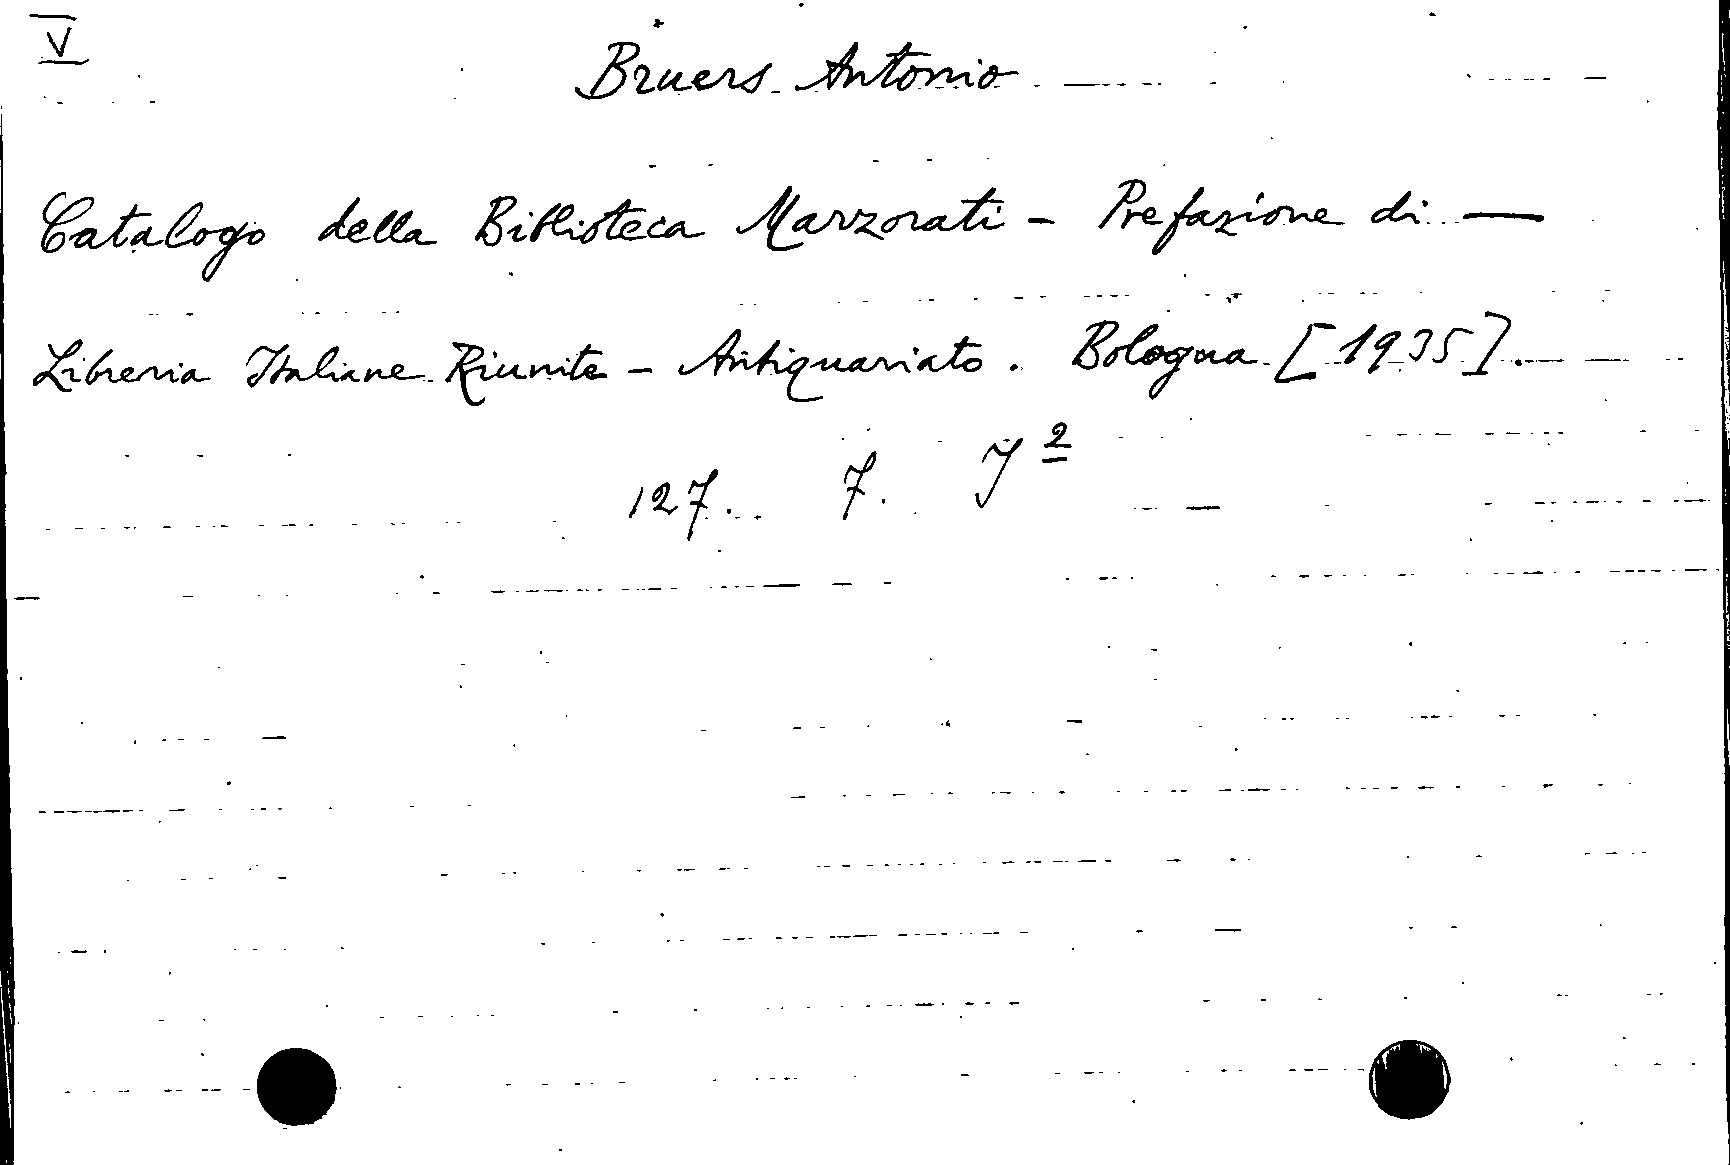 V
Bruers Antonio
Catalogo della Biblioteca Marzorati - Prefazione di —
Libreria Italiane Riunite - Antiquariato. Bologna [1935].
127. 7. J 2